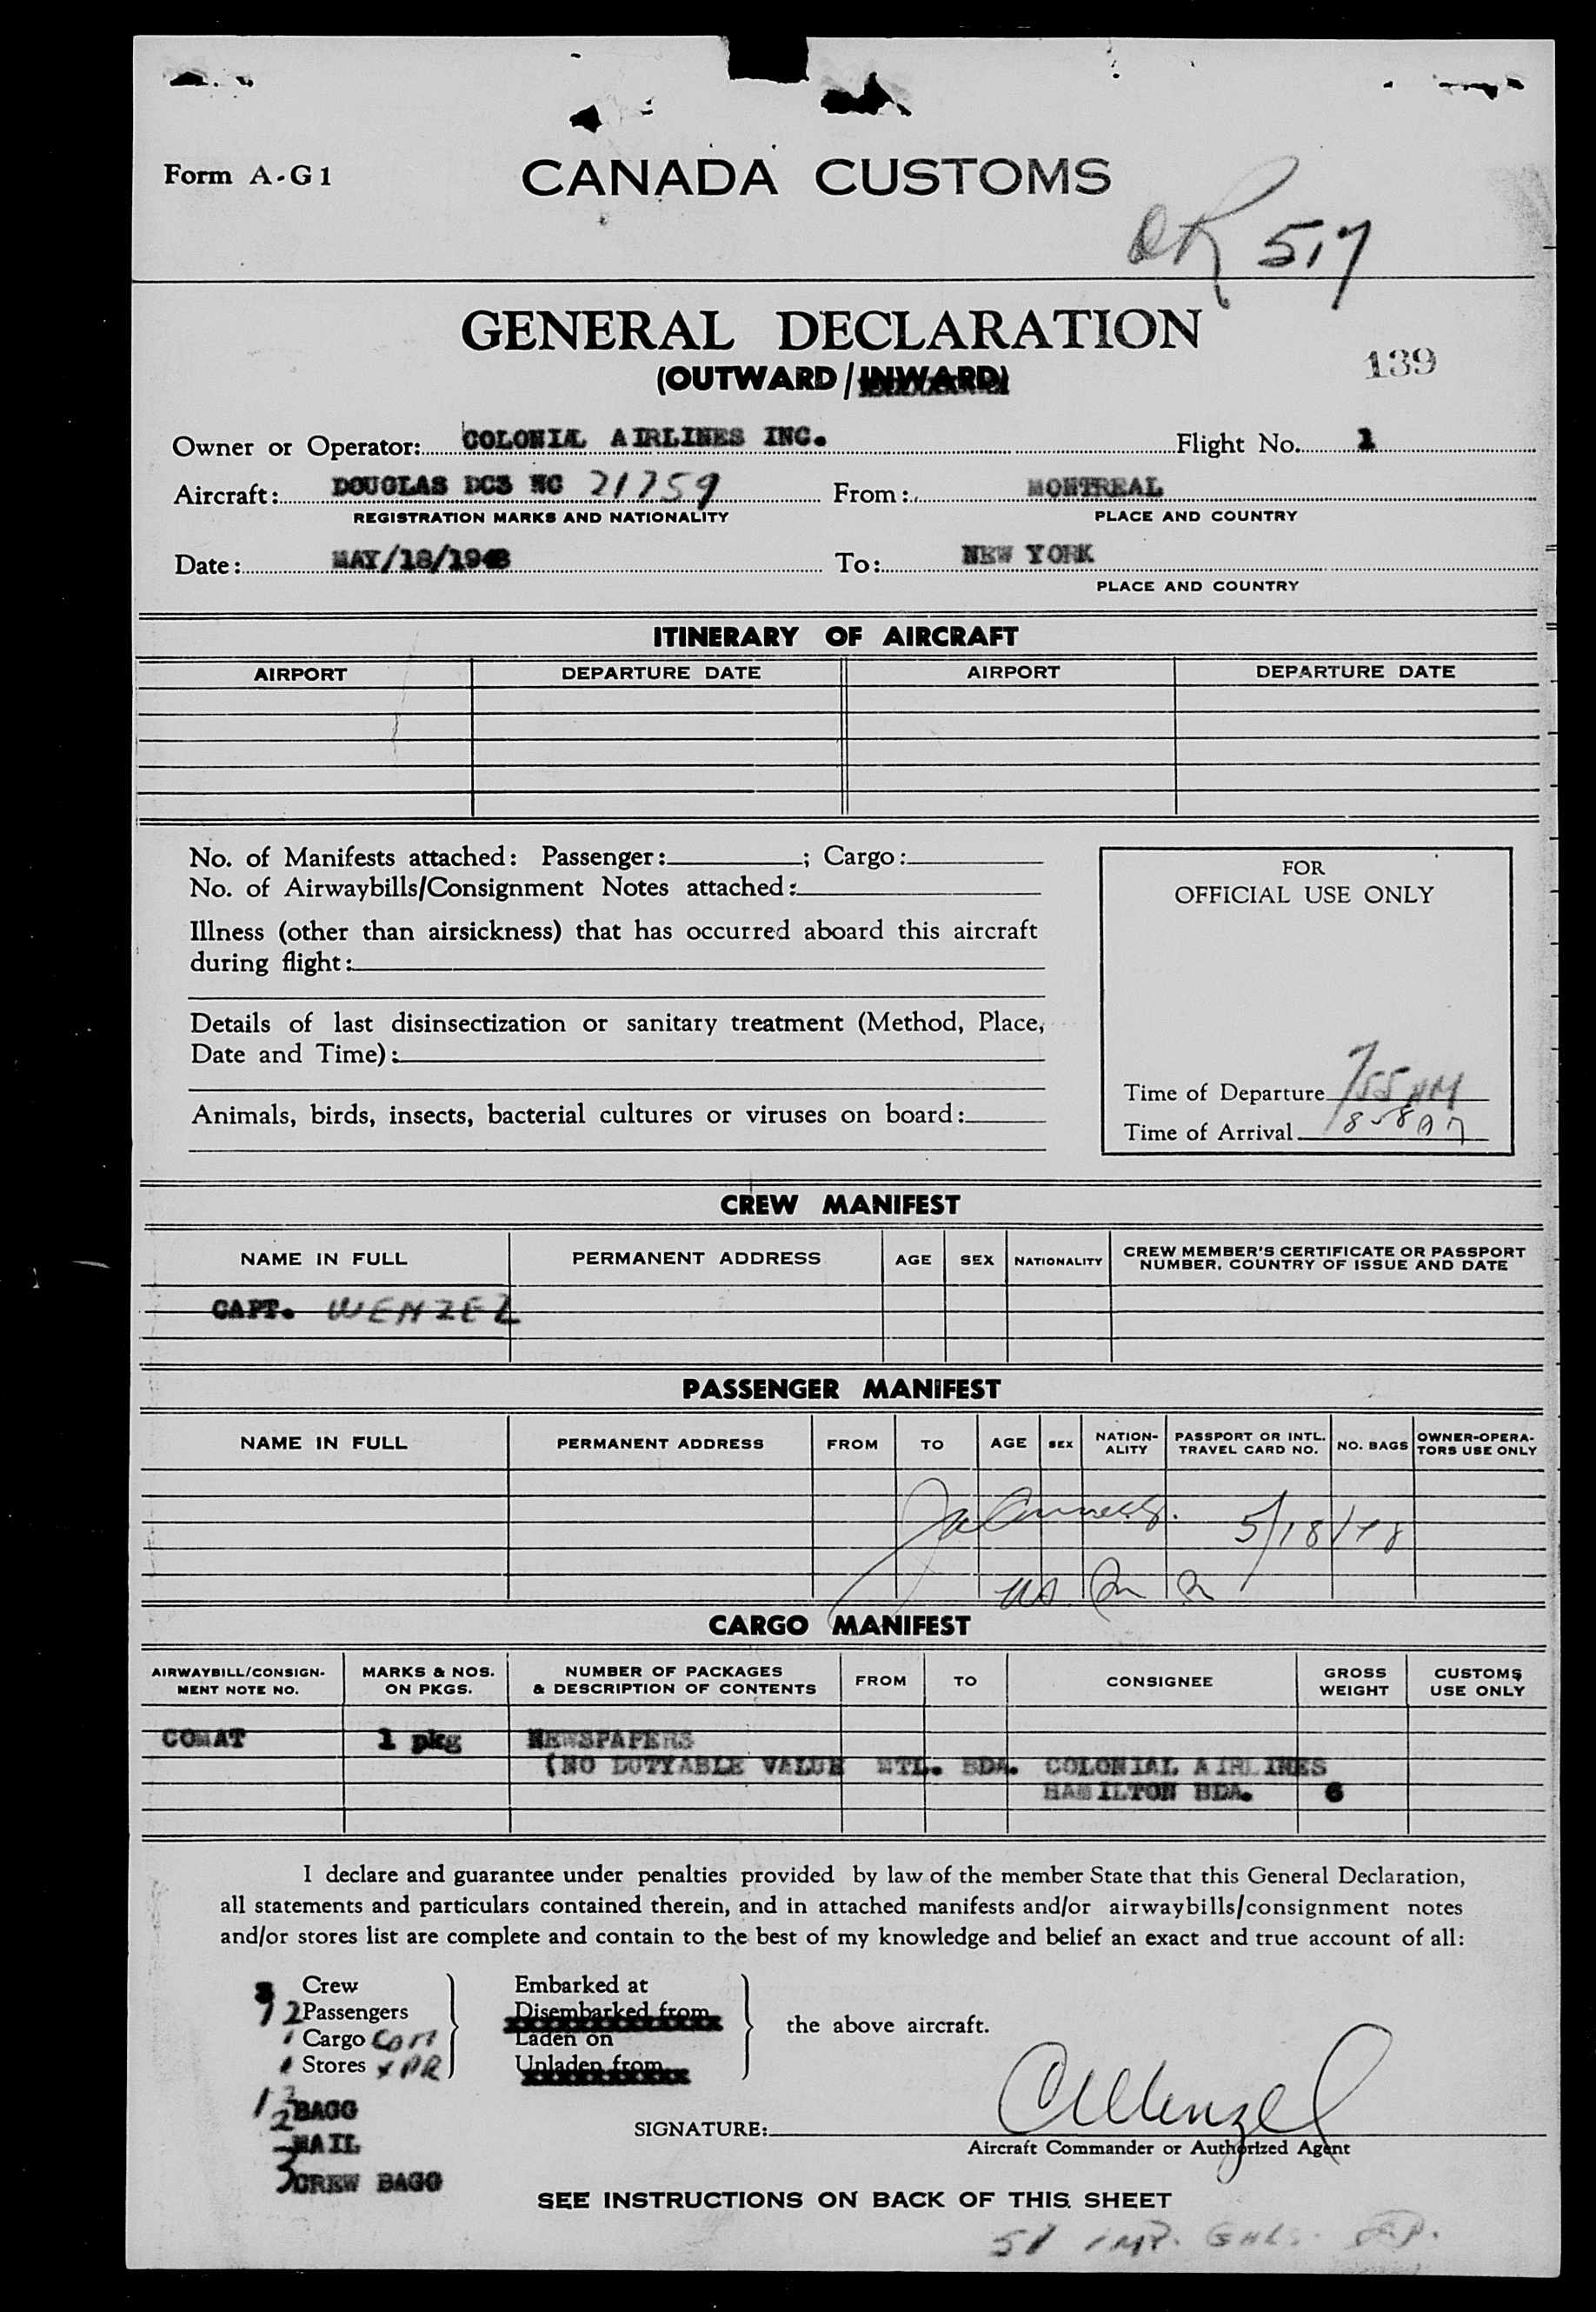 Form A-G1
CANADA CUSTOMS
OK 517
GENERAL DECLARATION
(OUTWARD/INWARD)
139
Owner or Operator: COLONIAL AIRLINES INC. Flight No. 1
Aircraft: DOUGLAS DC3 NC 21759 From: MONTREAL
REGISTRATION MARKS AND NATIONALITY PLACE AND COUNTRY
Date: MAY/18/1948 To: NEW YORK
PLACE AND COUNTRY
ITINERARY OF AIRCRAFT
AIRPORT DEPARTURE DATE AIRPORT DEPARTURE DATE
No. of Manifests attached: Passenger: ; Cargo:
No. of Airwaybills/Consignment Notes attached:
Illness (other than airsickness) that has occurred aboard this aircraft
during flight:
Details of last disinsectization or sanitary treatment (Method, Place,
Date and Time):
Animals, birds, insects, bacterial cultures or viruses on board:
FOR
OFFICIAL USE ONLY
Time of Departure 755 AM
Time of Arrival 858 A
CREW MANIFEST
NAME IN FULL PERMANENT ADDRESS AGE SEX NATIONALITY CREW MEMBER'S CERTIFICATE OR PASSPORT
NUMBER, COUNTRY OF ISSUE AND DATE
CAPT. WENZEL
PASSENGER MANIFEST
NAME IN FULL PERMANENT ADDRESS FROM TO AGE SEX NATION-
ALITY PASSPORT OR INTL.
TRAVEL CARD NO. NO. BAGS OWNER-OPERA-
TORS USE ONLY
5/18/48
CARGO MANIFEST
AIRWAYBILL/CONSIGN-
MENT NOTE NO. MARKS & NOS.
ON PKGS. NUMBER OF PACKAGES
& DESCRIPTION OF CONTENTS FROM TO CONSIGNEE GROSS
WEIGHT CUSTOMS
USE ONLY
COMAT 1 pkg NEWSPAPERS
(NO DUTYABLE VALUE MTL. BDA. COLONIAL AIRLINES
HAMILTON BDA. 6
I declare and guarantee under penalties provided by law of the member State that this General Declaration,
all statements and particulars contained therein, and in attached manifests and/or airwaybills/consignment notes
and/or stores list are complete and contain to the best of my knowledge and belief an exact and true account of all:
3 Crew
12 Passengers
1 Cargo
1 Stores
Embarked at
Disembarked from
Laden on
Unladen from
the above aircraft.
BAGG
MAIL
3 CREW BAGG
SIGNATURE: CWenzel
Aircraft Commander or Authorized Agent
SEE INSTRUCTIONS ON BACK OF THIS SHEET